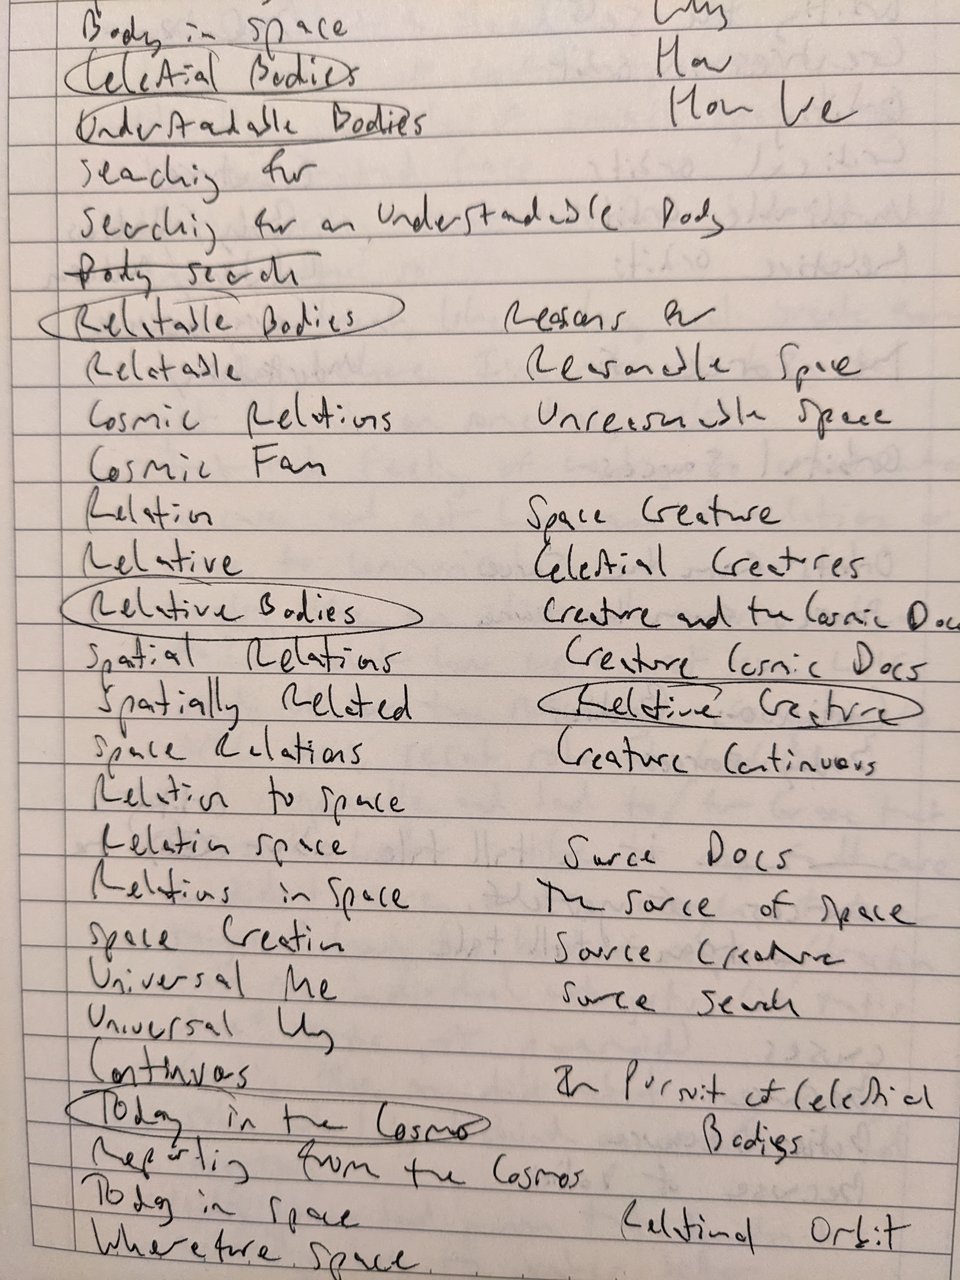 Body in space
Celestial Bodies
Understandable Bodies
Searching for
Searching for an Understandable Body
Body search
Relatable Bodies
Relatable
Cosmic Relations
Cosmic Fam
Relation
Relative
Relative Bodies
Spatial Relations
Spatially Related
Space Relations
Relation to space
Relation space
Relations in space
Space Creation
Universal Me
Universal Why
Continuous
Today in the Cosmos
Reporting from the Cosmos
Today in space
Wherefore space
Why
How
How We
Reasons for
Reasonable Space
Unreasonable space
Space Creature
Celestial Creatures
Creature and the Cosmic Docs
Creature Cosmic Docs
Relative Creature
Creature Continuous
Source Docs
The source of space
Source Creature
Source search
In Pursuit of Celestial
Bodies
Relational Orbit